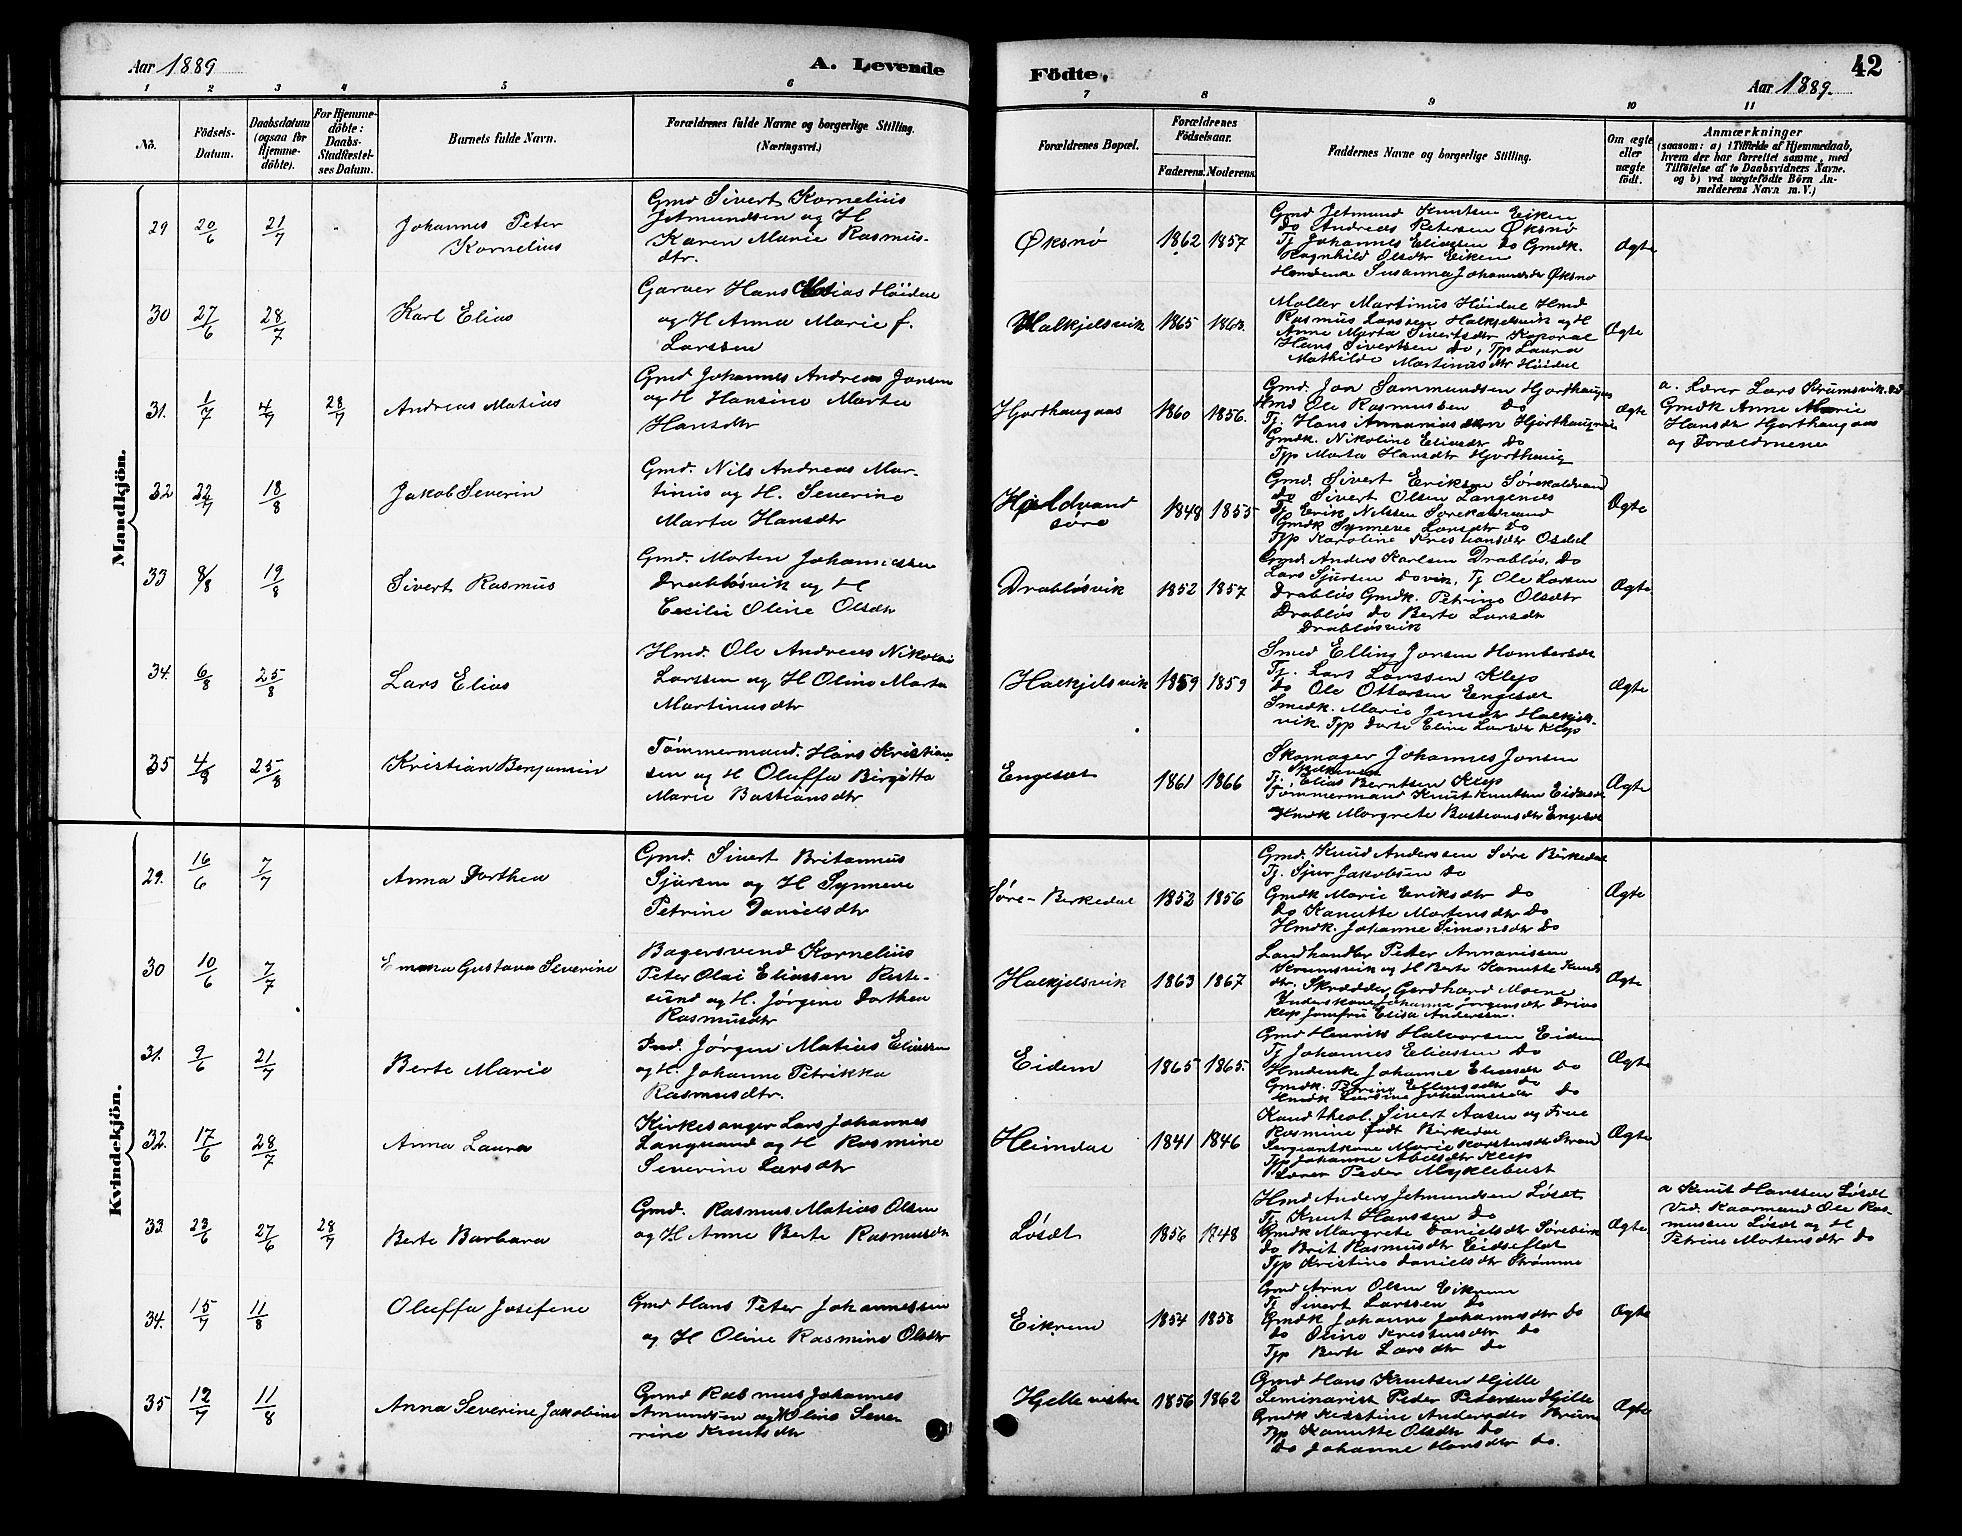 Aar 1889
A. Levende
Födte.
42
Aar 1889.
1 2 3 4 5 6 7 8 9 10 11
No.
Födsels-
Datum.
Daabsdatum
(ogsaa for
Hjemme-
döbte).
For Hjemme-
döbte:
Daabs-
Stadfæstel-
ses Datum.
Barnets fulde Navn.
Forældrenes fulde Navne og borgerlige Stilling.
(Næringsvei.)
Forældrenes Bopæl.
Forældrenes
Födselsaar.
Faderens. Moderens.
Faddernes Navne og borgerlige Stilling.
Om ægte
eller
uægte
födt.
Anmærkninger
(saasom: a) i Tilfælde af Hjemmedaab,
hvem der har forrettet samme, med
Tilföielse af to Daabsvidners Navne.
og b) ved uægtefödte Börn An-
melderens Navn m. V.)
Mandkjön.
29 20/6 21/7
Johannes Peter
Kornelius
Gmd Sivert Kornelius
Jetmundsen og H
Karen Marie Rasmus-
dtr.
Øksnø
1862 1857
Gmd Jetmund Knutsen Eiken
do Andreas Petersen Øksnø
Tj Johannes Eliassen do Gmdk.
Ragnhild Olsdtr Eiken
Susanna Johannesdtr Øksnø
Ægte
30 27/6 28/7
Karl Elias
Garver Hans Matias Höidal
og H Anna Marie f.
Larssen
Halkjelsvik
1865 1863.
Möller Martinus Höidal Hmd
Rasmus Larssen Halkjelsvik og H
Anne Marta Sivertsdtr Koporal
Hans Sivertsen do, Typ Laura
Mathilde Martinusdtr Höidal
Ægte
31. 1/7 4/7 28/7
Andreas Matias
Gmd Johannes Andreas Jonsen
og H Hansine Marta
Hansdtr
Hjorthaugaas
1860 1856.
Gmd. Jon Sammundsen Hjorthaugaas
Hmd Ole Rasmussen do
Tj. Hans Annaniassen Hjorthaugaas
Gmdk. Nikoline Eliasdtr do
Typ Marta Hansdtr Hjorthaug
Ægte
a. Lærer Lars Krumsvik. ved
Gmdk Anne Marie
Hansdtr Hjorthaugaas
og Forældrene
32 22/7 18/8
Jakob Severin
Gmd. Nils Andreas Mar-
tinus og H. Severine
Marta Hansdtr
Kjeldvand
søre
1848 1855
Gmd. Sivert Eriksen Sørekaldvand
do Sivert Olsen Langenes
Tj Erik Nilssen Sørekaldvand
Gmdk Synneve Larsdtr do
Typ Karoline Kristiansdtr Osdal
Ægte
33 8/8 19/8
Sivert Rasmus
Gmd. Morten Johannessen
Drabløsvik og H
Cecilie Oline Olsdtr
Drabløsvik
1852 1857
Gmd. Anders Karlsen Drabløs, do
Lars Sjursen dovik, Tj Ole Larsen
Drabløs Gmdk. Petrine Olsdtr
Drabløs do Berte Larsdtr
Drabløsvik
Ægte
34. 6/8 25/8
Lars Elias
Hmd. Ole Andreas Nikolai
Larssen og H Oline Marta
Martinusdtr
Halkjelsvik
1859 1859
Smed Elling Jonsen Hombersæt
Tj. Lars Larssen Klep
do Ole Ottarsen Engeset
Smedk. Marie Jensdtr Halkjels-
vik Typ Dorte Eline Larsdtr Klep
Ægte
35 4/8 25/8
Kristian Benjamin
Tømmermand. Hans Kristian-
sen og H Oluffa Birgitta
Marie Bastiansdtr
Engeset
1861 1866
Skomager Johannes Jonsen
Tj. Elias Berntsen Klep
Tømmermand Knut Knutsen Eidset
Hmdk Margrete Bastiansdtr Engeset
Ægte
Kvindekjön.
29. 16/6 7/7
Anna Dorthea
Gmd. Sivert Britannus
Sjursen og H Synneve
Petrine Danielsdtr
Søre-Birkedal
1852 1856
Gmd. Knud Anderssen Søre Birkedal
Tj. Sjur Jakobsen do
Gmdk Marie Eriksdtr do
do Kanutte Mortensdtr do
Hmdk. Johanne Simonsdtr do
Ægte
30 10/6 7/7
Emma Gustava Severine
Bagersvend Kornelius
Peter Olai Eliassen Riste-
sund og H. Jørgine Dorthea
Rasmusdtr
Halkjelsvik
1863 1867
Landhandler Peter Annanissen
Krumsvik og H Berte Kanutte Knuds
dtr. Skrædder Gerdhard Moene
Johanne Jørgensdtr Drias
Klep Jomfru Elisa Anderssen.
Ægte
31. 9/6 21/7
Berte Marie
Ind. Jørgen Matias Eliassen
og H. Johanne Petrikka
Rasmusdtr.
Eidem
1865 1865.
Gmd Henrik Halvorsen Eidem
Tj Johannes Eliassen do
Johanne Eliasdtr do
Gmdk. Petrine Ellingsdtr do
Hmdk Larsine Johannesdtr do
Ægte
32. 17/6 28/7
Anna Laura
Kirkesanger Lars Johannes
Langvand og H Rasmine
Severine Larsdtr
Heimdal
1841 1846
Kand theol. Sivert Aasen og Frue
Rasmine født Birkedal
Sergeantkone Marie Karstensdtr Strand
Typ Johanne Abelsdtr Klep
Lærer Peder Myklebust
Ægte
33. 23/6 27/6 28/7
Berte Barbara
Gmd. Rasmus Matias Olsen
og H Anne Berte Rasmusdtr
Løsæt
1856 1848
Hmd Anders Jetmundsen Løset
Tj Knut Hanssen do
Gmdk Margrete Danielsdtr Sørebirk
do Brit Rasmusdtr Eidseflot
Typ Kristine Danielsdtr Strømme
Ægte
a Knut Hanssen Løsæt
Vid. Kaarmand Ole Ras-
mussen Løsæt og H
Petrine Mortensdtr do
34. 15/7 11/8
Oluffa Josefine
Gmd Hans Peter Johannessen
og H Oline Rasmine Olsdtr
Eikrem
1854 1858
Gmd Arne Olsen Eikrem
Tj Sivert Larssen do
Gmdk Johanne Johannesdtr do
do Oline Kristensdtr do
Typ Berte Larsdtr do
Ægte
35 12/7 11/8
Anna Severine Jakobine
Gmd Rasmus Johannes
Amundsen og H Oline Seve-
rine Knutsdtr
Hjelle vestre
1856 1862
Gmd Hans Knutsen Hjelle
Seminarist Peder Pedersen Hjelle
Gmdk Kristine Andersdtr
Typ Kanutte Olsdtr do
do Johanne Hansdtr do.
Ægte